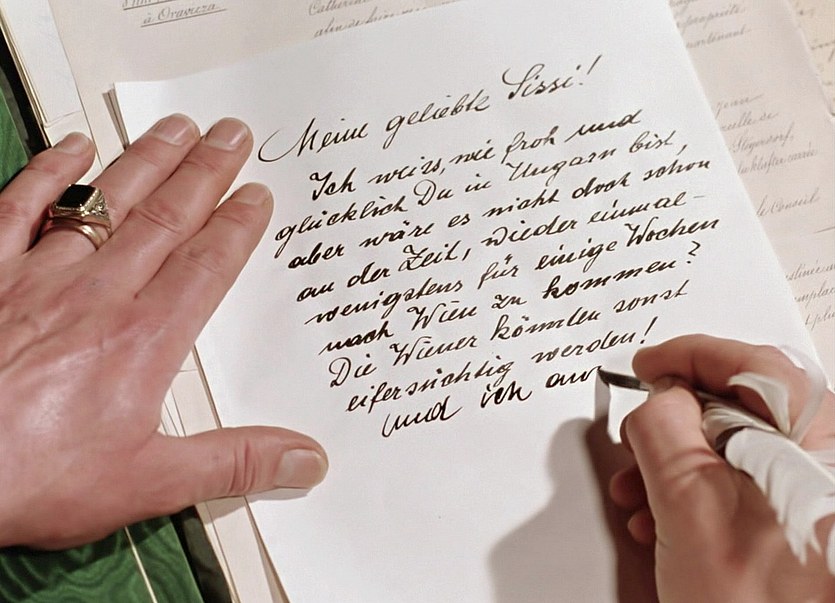 à Oravicza.
Meine geliebte Sissi!
Ich weiss, wie froh und
glücklich Du in Ungarn bist,
aber wäre es nicht doch schon
an der Zeit, wieder einmal-
wenigstens für einige Wochen
nach Wien zu kommen?
Die Wiener könnten sonst
eifersüchtig werden!
und ich auc
propriété
le Conseil